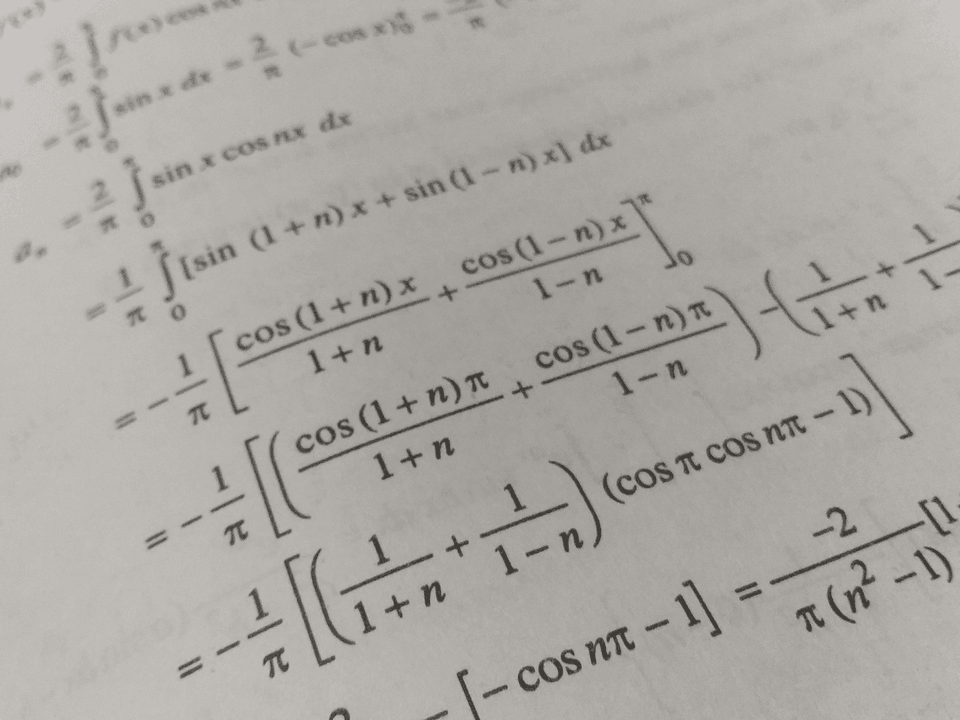 = 2/π ∫ f(x) cos nx
= 2/π ∫₀^π sin x dx = 2/π (− cos x)₀^π = −2/π
aₙ = 2/π ∫₀^π sin x cos nx dx
= 1/π ∫₀^π [sin (1 + n) x + sin (1 − n) x] dx
= − 1/π [cos (1 + n) x/1 + n + cos (1 − n) x/1 − n]₀^π
= − 1/π [(cos (1 + n) π/1 + n + cos (1 − n) π/1 − n) − (1/1 + n + 1/1 −
= − 1/π [(1/1 + n + 1/1 − n) (cos π cos nπ − 1)]
[− cos nπ − 1] = −2/π (n² − 1) [1